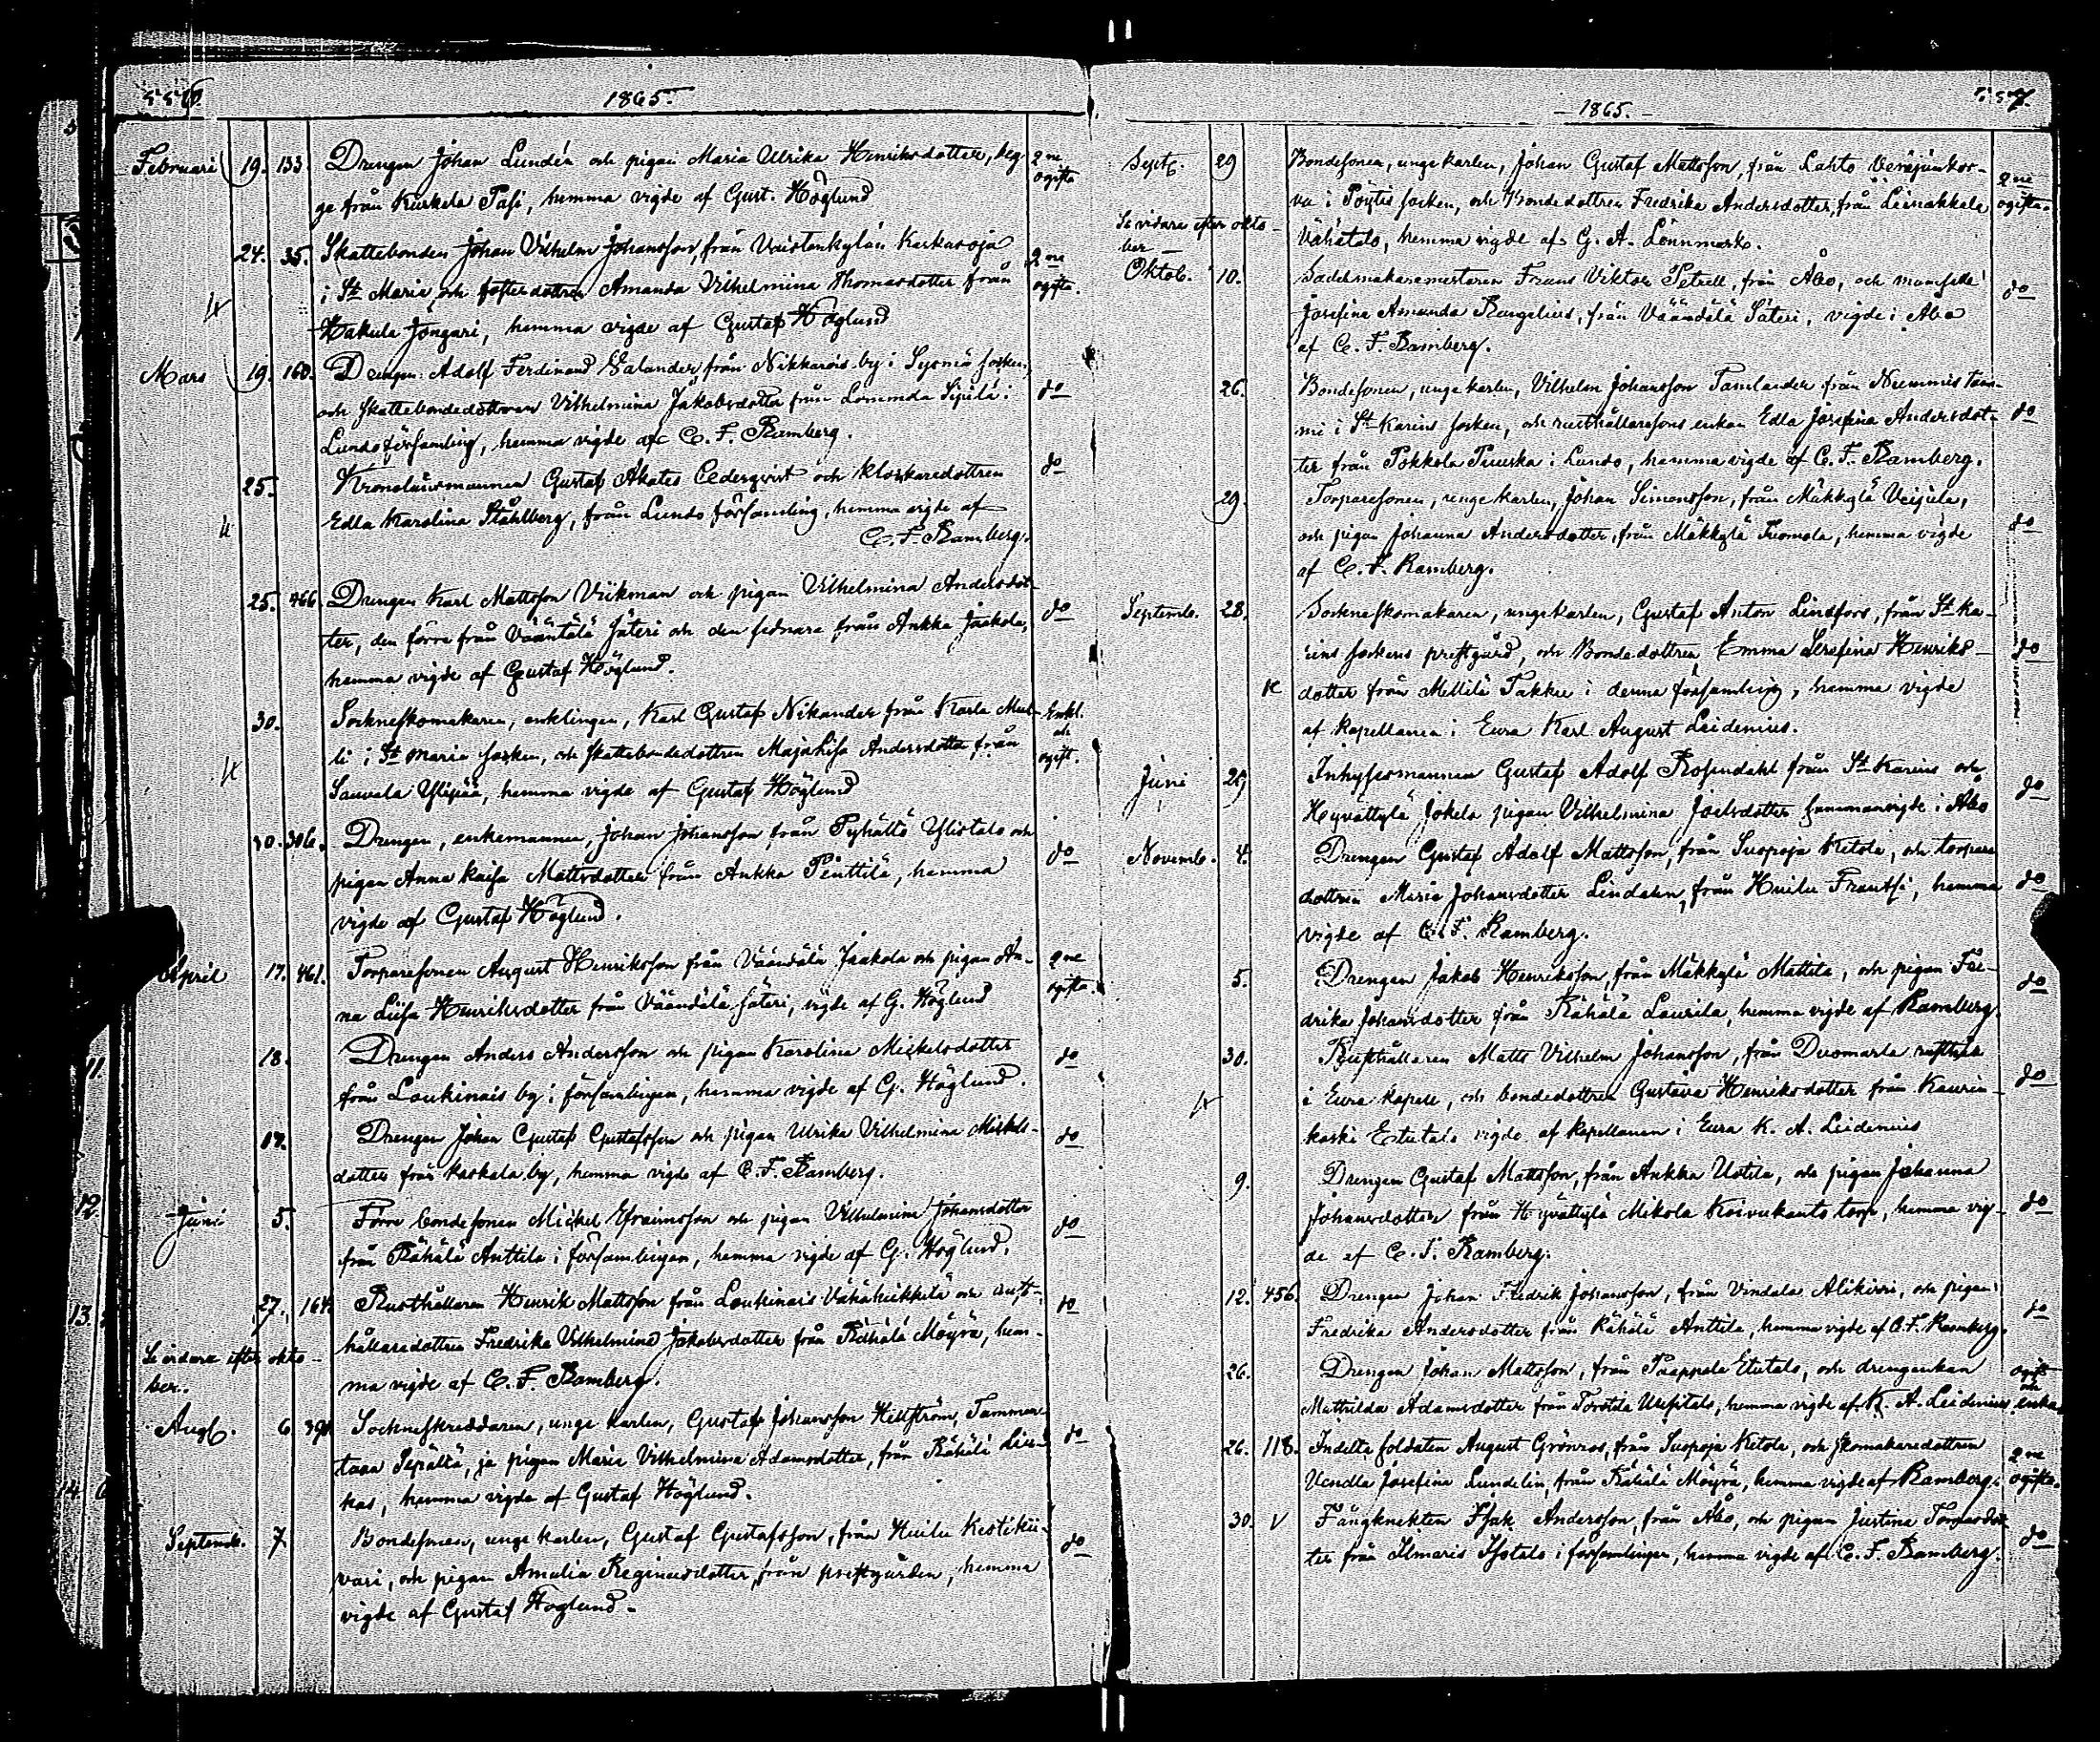 556.
1865.
Februari 19. 133. Drengen Johan Lundén och pigan Maria Ulrika Henriksdotter, beg- 2ne
ge från Kurkela Pasi, hemma vigde af Gust. Höglund ogifta
24. 35. Skattebonden Johan Vilhelm Johansson, från Vaistenkylän Karkasoja 2ne
i St Marie och fosterdottren Amanda Vilhelmina Thomasdotter från ogifta.
Hakula Jöngari, hemma vigde af Gustaf Höglund
Mars 19. 160. Drengen Adolf Ferdinand Salander från Nikkarois by i Sysmä socken,
och skattebondedottren Vilhelmina Jakobsdotter från Lommola Sipilä i do
Lundo församling, hemma vigde af C. F. Ramberg.
25. Kronolänsmannen Gustaf Akates Cederqvist och klockaredottren do
Edla Karolina Ståhlberg, från Lundo församling, hemma vigde af
C. F. Ramberg.
25. 466. Drengen Karl Mattsson Viikman och pigan Vilhelmina Andersdot-
ter, den förre från Vääntälä Säteri och den sednare från Ankka Jaakola, do
hemma vigde af Gustaf Höglund.
30. Sockneskomakaren, enklingen, Karl Gustaf Nikander från Karla Mul- Enkl.
li i St Marie socken, och skattebondedottren Maja Lisa Andersdotter från och ogift.
Sauvala Ylipää, hemma vigde af Gustaf Höglund
30. 306. Drengen, enkemannen, Johan Johansson, från Pyhältö Ylistalo och
pigan Anna Kaisa Mattsdotter från Ankka Penttilä, hemma do
vigde af Gustaf Höglund.
April 17. 461. Torparesonen August Henriksson från Väändälä Jaakola och pigan An- 2ne
na Liisa Henriksdotter från Väändälä Säteri, vigde af G. Höglund ogifta.
18. Drengen Anders Andersson och pigan Karolina Mickelsdotter do
från Loukinais by i församlingen, hemma vigde af G. Höglund.
17. Drengen Johan Gustaf Gustafsson och pigan Ulrika Vilhelmina Mickels- do
dotter från Kaskala by, hemma vigde af C. F. Ramberg.
Juni 5. Förre bondesonen Mickel Efraimsson och pigan Vilhelmina Johansdotter
från Rähälä Anttila i församlingen, hemma vigde af G. Höglund. do
27. 164. Rusthållaren Henrik Mattsson från Loukinais Vähäkiekkela och rust- do
hållaredottren Fredrika Vilhelmina Jakobsdotter från Rähälä Möyrä, hem-
Se vidare efter oktober.
ma vigde af C. F. Ramberg.
Aug. 6 Sockneskräddaren, unge karlen, Gustaf Johansson Hellström, Tammen-
taan Sepältä, ja pigan Maria Vilhelmina Adamsdotter, från Rähälä do
kas, hemma vigde af Gustaf Höglund.
Septemb. 7 Bondesonen, unge karlen, Gustaf Gustafsson, från Huilu Kestikii-
vari, och pigan Amalia Reginasdotter, från prestgården, hemma do
vigde af Gustaf Höglund.
557.
1865.
Septb. 29 Bondesonen, unge karlen, Johan Gustaf Mattsson, från Lahto
va i Pöytis socken, och Bondedottren Fredrika Andersdotter, från Leinakkala 2ne ogifta.
Se vidare efter oktober
Vähätalo, hemma vigde af G. A. Lönnmark.
Oktob. 10. Sadelmakaremestaren Frans Viktor Petrell, från Åbo, och mamsell do
Josefina Amanda Rengelius, från Väändälä Säteri, vigde i Åbo
af C. F. Ramberg.
26. Bondesonen, unge karlen, Vilhelm Johansson Tamlander från Nummis Tam-
mi i St Karins socken, och rusthållaresons enkan Edla Josefina Andersdot- do
ter från Pokkola Puuska i Lundo, hemma vigde af C. F. Ramberg.
29. Torparesonen, unge karlen, Johan Simonsson, från Mäkkylä Veijula,
och pigan Johanna Andersdotter, från Mäkkylä Tuomola, hemma vigde do
af C. F. Ramberg.
Septemb. 28. Sockneskomakaren, unge karlen, Gustaf Anton Lindfors, från St Ka-
rins sockens prestgård, och Bondedottren Emma Serafina Henriks- do
dotter från Mellilä Takku i denna församling, hemma vigde
af kapellanen i Eura Karl August Leidenius.
Juni 29 Inhysesmannen Gustaf Adolf Rosendahl från St Karins och do
Hyvättylä Jokela pigan Vilhelmina Joelsdotter sammanvigde i Åbo
Novemb. 4. Drengen Gustaf Adolf Mattsson, från Suopoja Ketola, och torpare
dottren Maria Johansdotter Lindahn, från Huilu Frantsi, hemma do
vigde af C. F. Ramberg.
5. Drengen Jakob Henriksson, från Mäkkylä Mattila, och pigan Fre- do
drika Johansdotter från Rähälä Laurila, hemma vigde af Ramberg.
30. Rusthållaren Matts Vilhelm Johansson, från Duomarla rusthåll
i Eura kapell, och bondedottren Gustava Henriksdotter från Kaurin- do
koski Etutalo vigde af kapellanen i Eura K. A. Leidenius
9. Drengen Gustaf Mattsson, från Ankka Uotila, och pigan Johanna
Johansdotter från Hyvättylä Mikola Koivukanto torp, hemma vig- do
de af C. F. Ramberg.
12. 456. Drengen Johan Fredrik Johansson, från Vindala Alikirri, och pigan
Fredrika Andersdotter från Rähälä Anttila, hemma vigde af C. F. Ramberg. do
26. Drengen Johan Mattsson, från Paappala Etutalo, och drengenkan ogift
Mathilda Adamsdotter från Torstila Uusitalo, hemma vigde af K. A. Leidenius och enka.
26. 118. Indelta soldaten August Grönroos, från Suopoja Ketola, och skomakaredottren 2ne
Vendla Josefina Lundelin, från Rähälä Möyrä, hemma vigde af Ramberg. ogifta.
30. V Fångknekten Isak Andersson, från Åbo, och pigan Justina Tomasdot- do
ter från Ilmaris Isotalo i församlingen, hemma vigde af C. F. Ramberg.